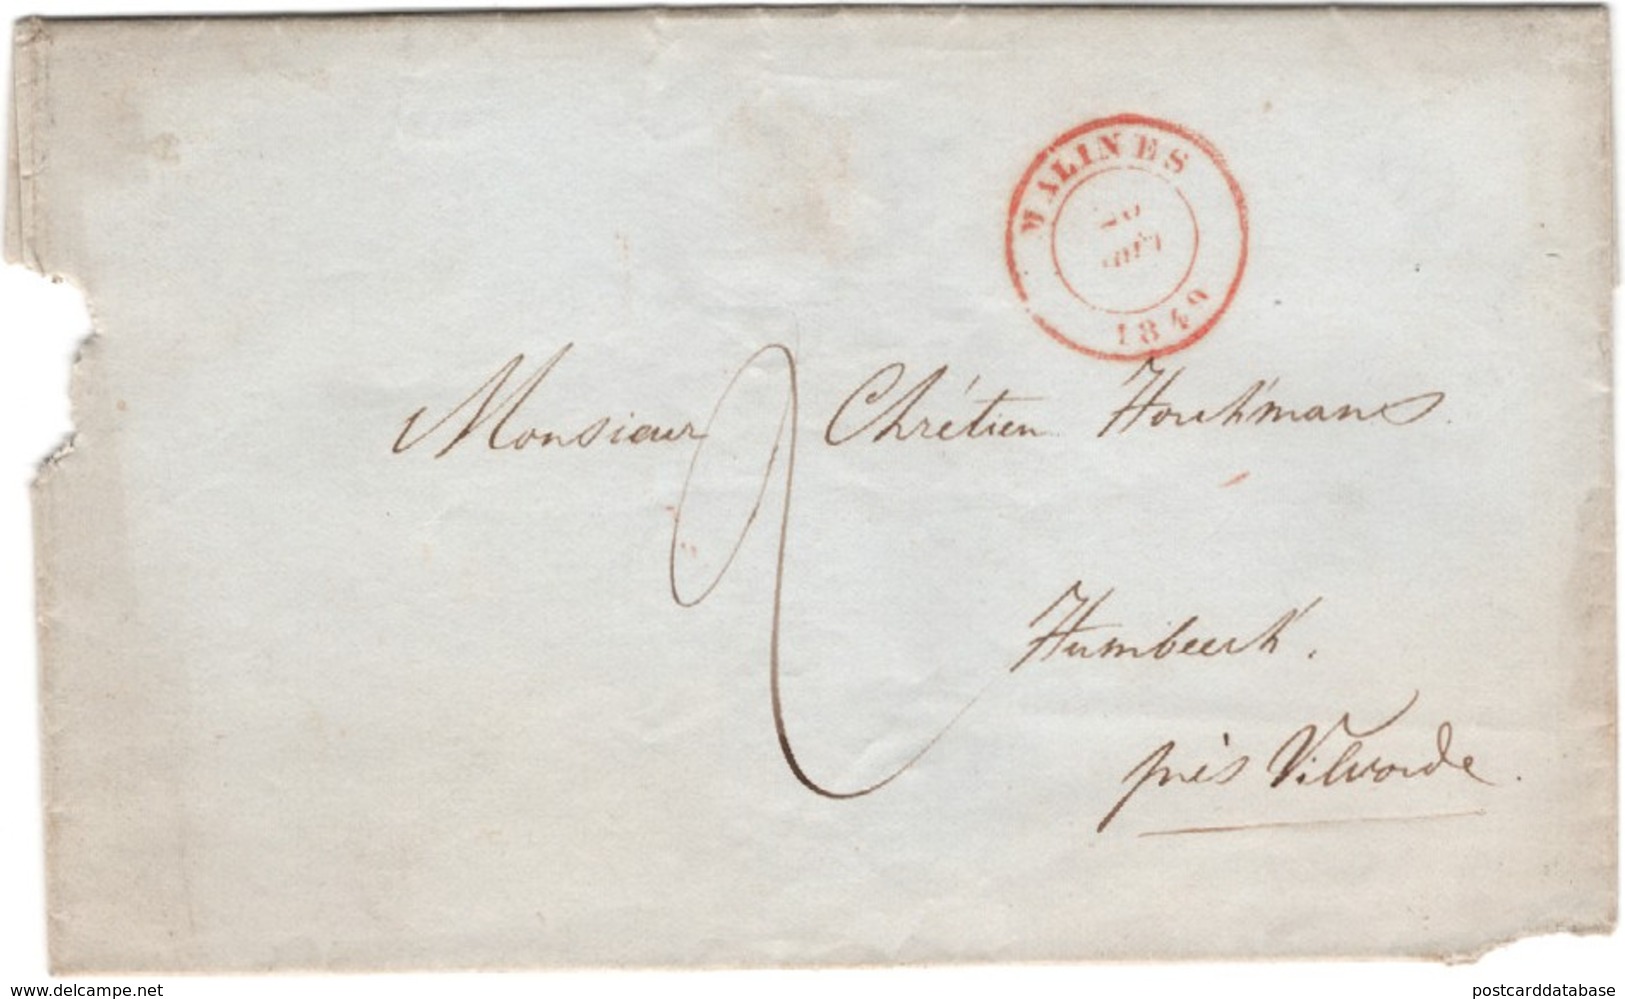 MALINES
20
1849
2
Monsieur Chrétien Houkmans
Humbeek.
près Vilvorde.
www.delcampe.net
postcarddatabase